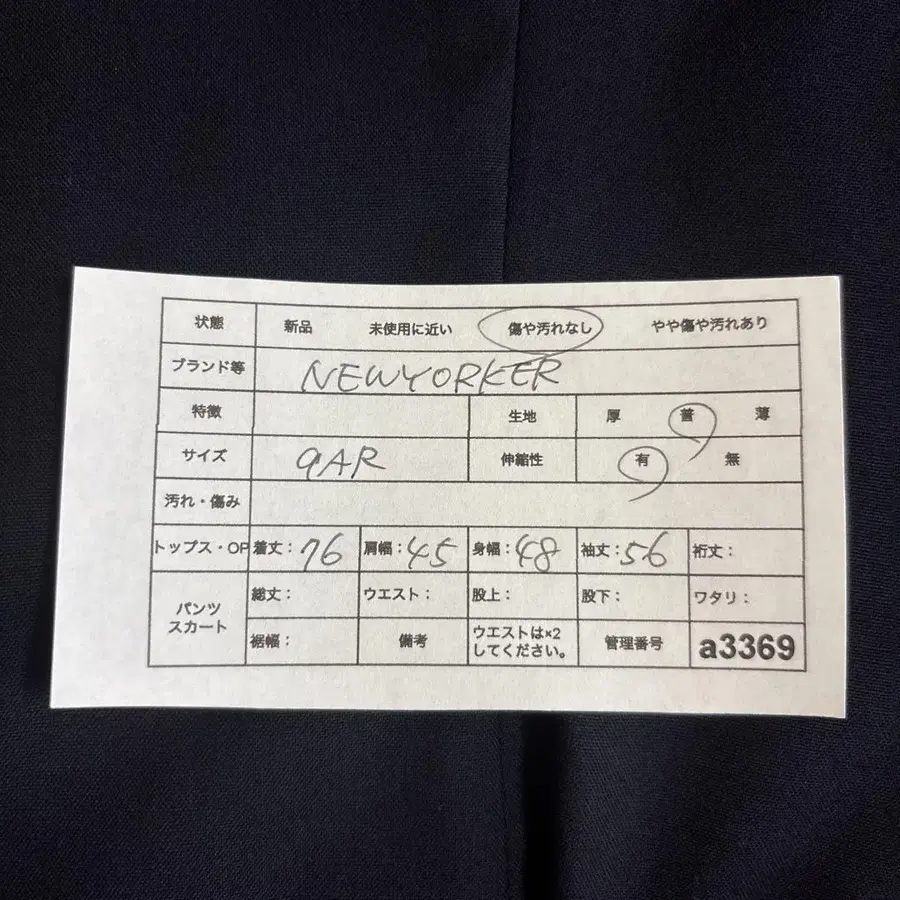 状態 新品 未使用に近い 傷や汚れなし やや傷や汚れあり
ブランド等 NEWYORKER
特徴 生地 厚 普 薄
サイズ 9AR 伸縮性 有 無
汚れ・傷み
トップス・OP 着丈: 76 肩幅: 45 身幅: 48 袖丈: 56 裄丈:
パンツ スカート 総丈: ウエスト: 股上: 股下: ワタリ:
裾幅: 備考 ウエストは×2 してください。 管理番号 a3369